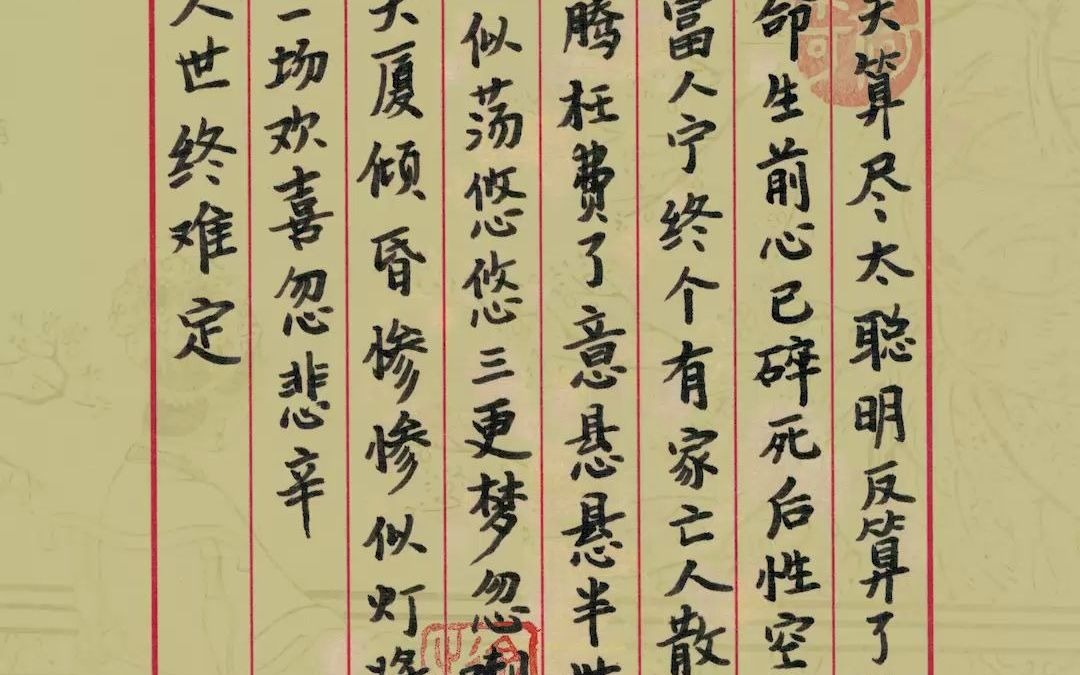 关算尽太聪明反算了
命生前心已碎死后性空
富人宁终个有家亡人散
腾枉费了意悬悬半世
似荡悠悠三更梦忽喇
大厦倾昏惨惨似灯将
一场欢喜忽悲辛
人世终难定